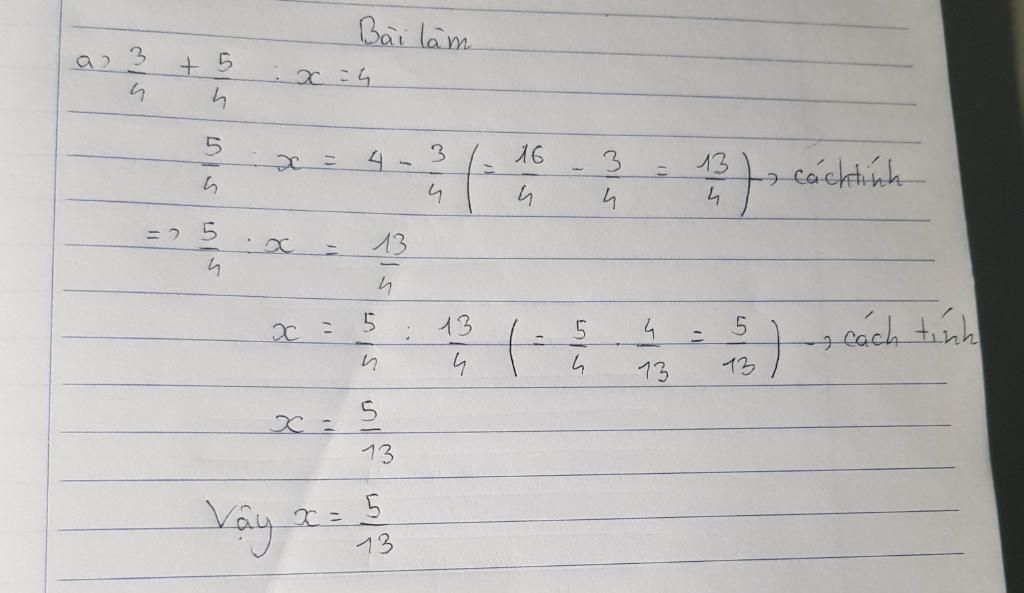 Bài làm
a> 3/4 + 5/4 : x = 4
5/4 : x = 4 - 3/4 (= 16/4 - 3/4 = 13/4) → cách tính
=> 5/4 : x = 13/4
x = 5/4 : 13/4 (= 5/4 . 4/13 = 5/13) → cách tính
x = 5/13
Vậy x = 5/13